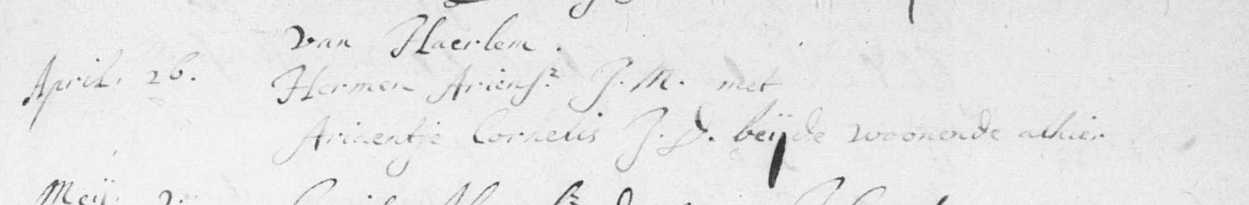 van Haerlem.
April. 26. Hermen Ariensz. J. M. met
Ariaentje Cornelis J. D. beijde woonende alhier
Meij.